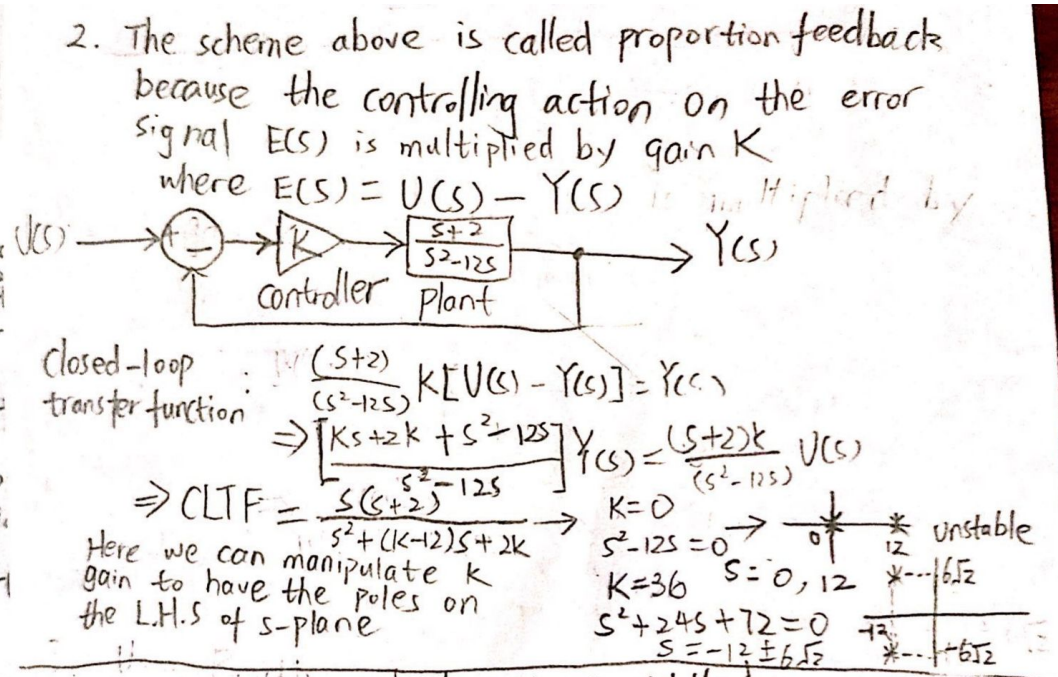 2. The scheme above is called proportion feedback
because the controlling action on the error
signal E(S) is multiplied by gain K
where E(S) = U(S) − Y(S)
U(S) + − K S+2 / S2-12S Y(S)
controller plant
Closed-loop transfer function : (S+2)/(S²-12S) K[U(S) − Y(S)] = Y(S)
⇒ [KS+2K+S²-12S / S²-12S] Y(S) = (S+2)K/(S²-12S) U(S)
⇒ CLTF = S(S+2) / S²+(K-12)S+2K → K=0
S²-12S=0 → 0 12 unstable
S=0, 12
Here we can manipulate K
gain to have the poles on
the L.H.S of s-plane
K=36
S²+24S+72=0
S=-12±6√2
6√2
-12
-6√2